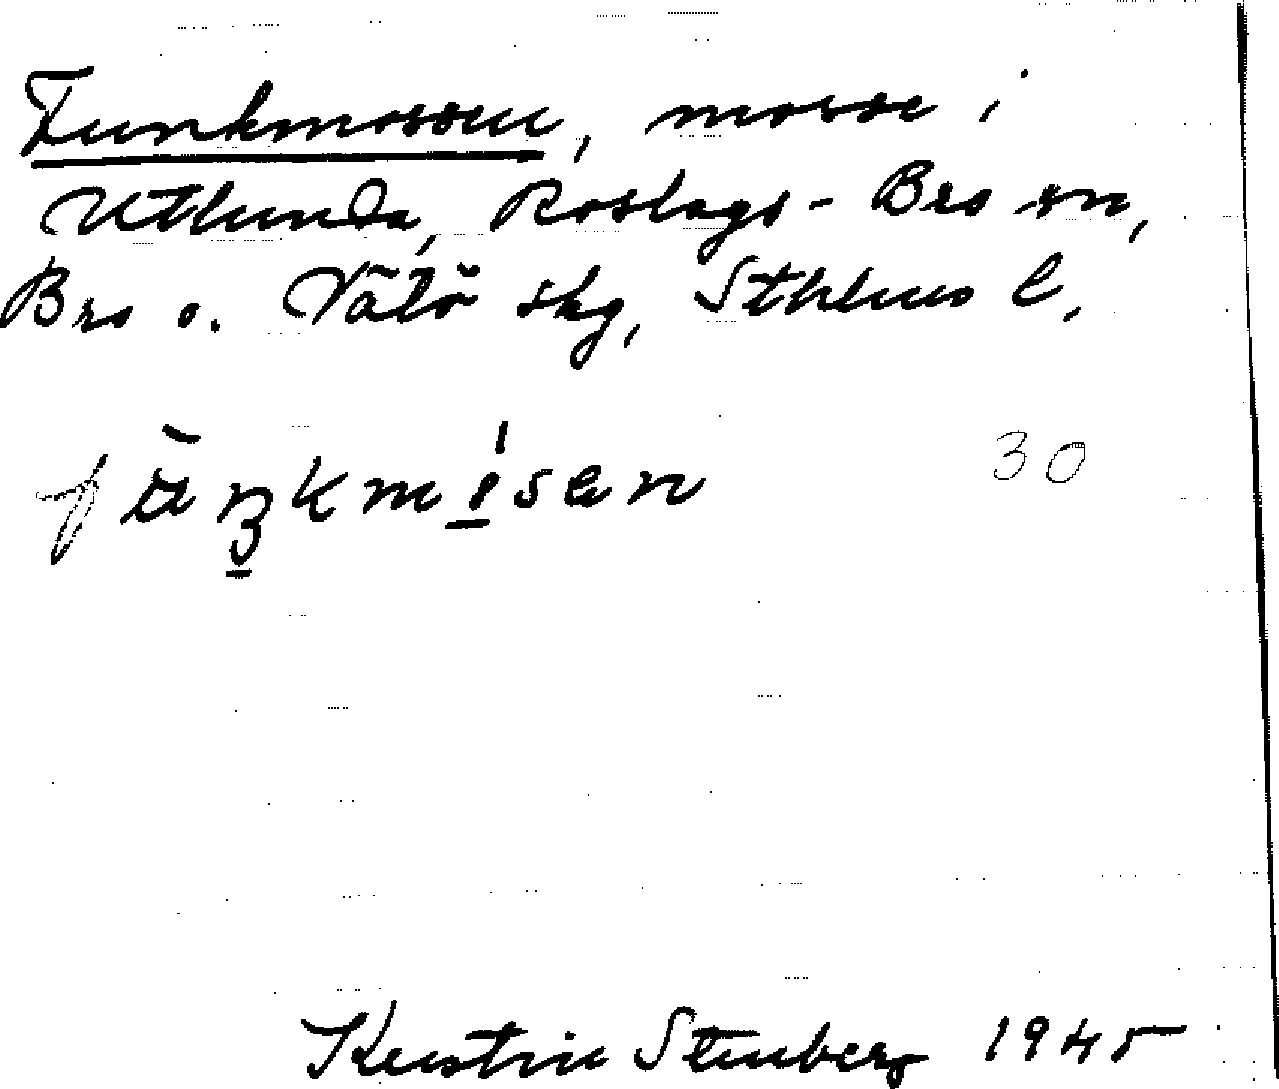 Funkmossen, mosse i
Utlunda, Roslags-Bro sn,
Bro o. Vätö skg, Sthlms l.
30
Kerstin Stenberg 1945